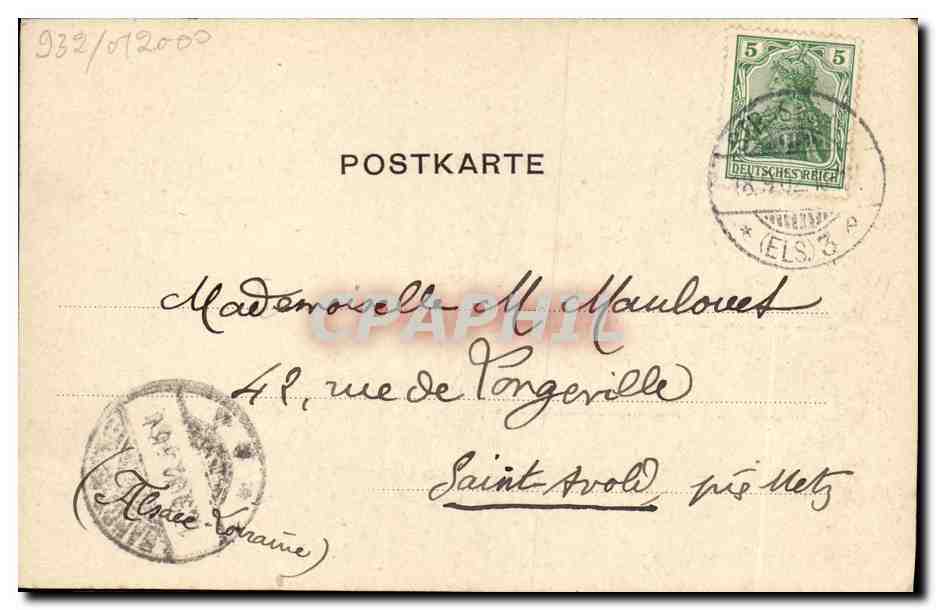 932/012000
5 5
DEUTSCHES REICH
* (ELS.) 3
POSTKARTE
CPAPHIL
Mademoiselle M Maulouet
42, rue de Longeville
Saint Avold, près Metz
(Alsace-Lorraine)